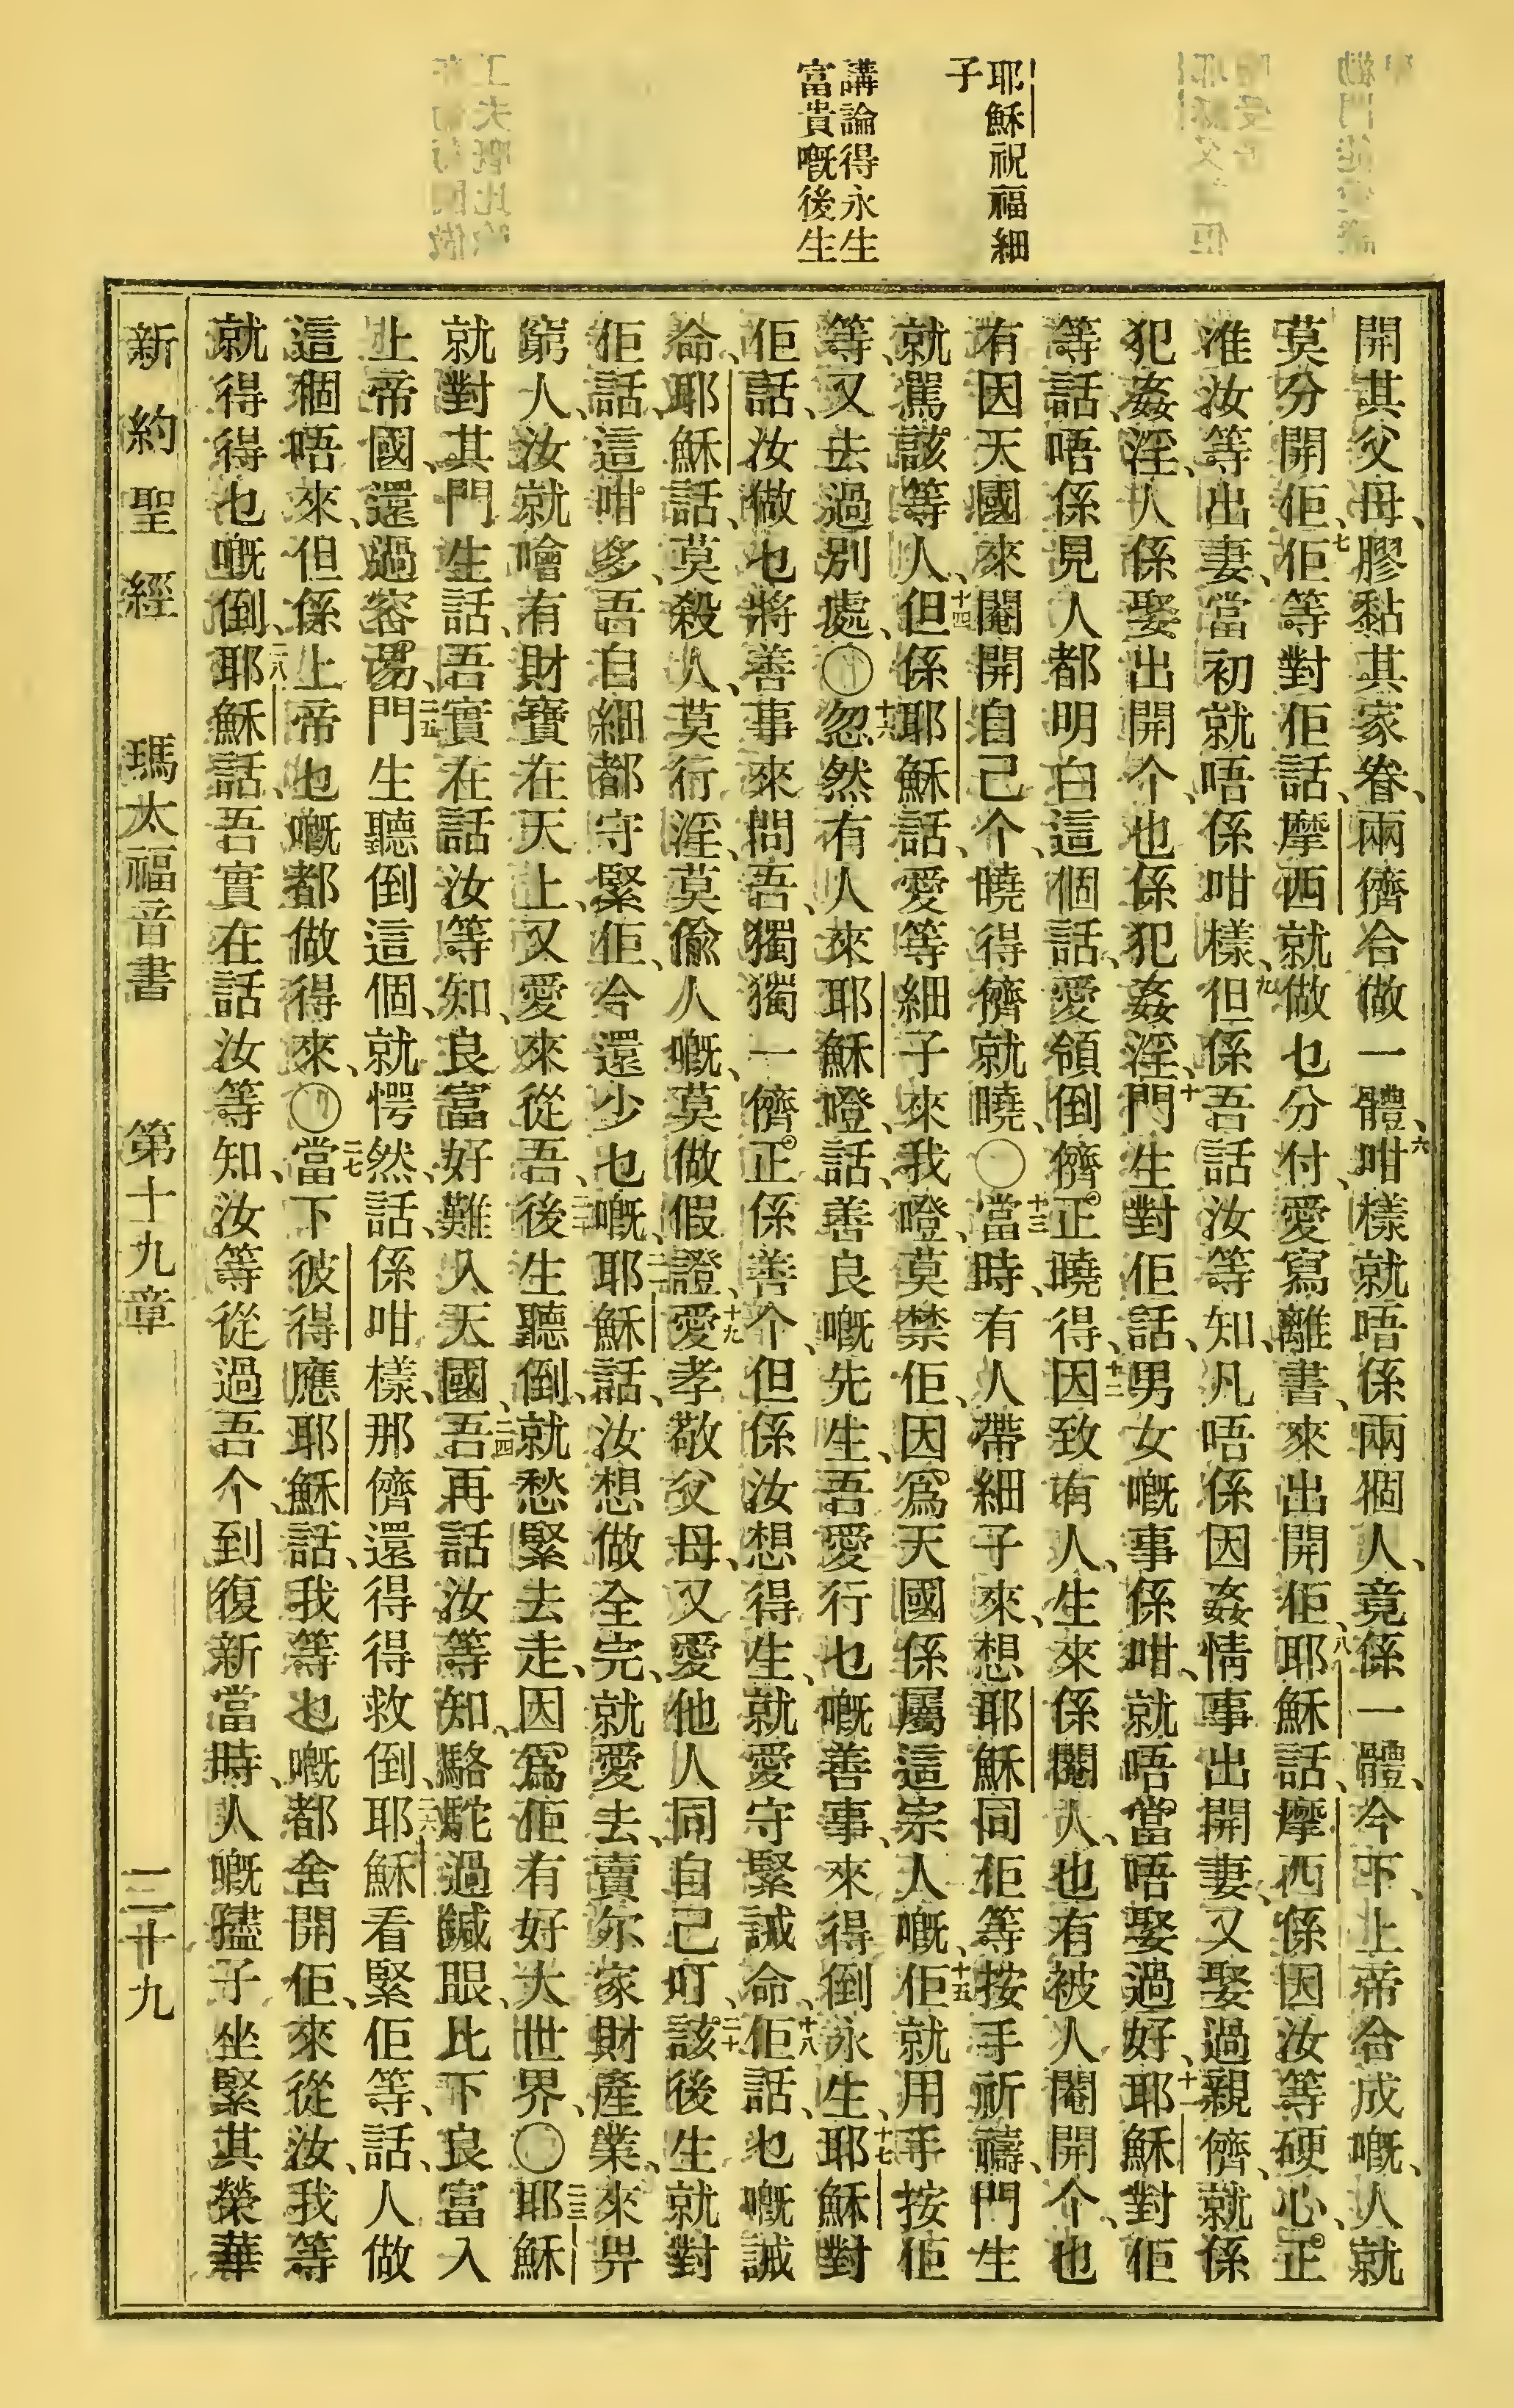 耶穌祝福細
子
講論得永生
富貴嘅後生
開其父母、膠黏其家眷、兩儕合做一體、六咁樣就唔係兩個人、竟係一體、今下、上帝合成嘅、人就
莫分開佢、七佢等對佢話、摩西就做乜分付、愛寫離書、來出開佢、八耶穌話、摩西係因汝等硬心、正
准汝等出妻、當初就唔係咁樣、九但係吾話汝等知、凡唔係因姦情事出開妻、又娶過親儕、就係
犯姦淫、人係娶出開个、也係犯姦淫、十門生對佢話、男女嘅事係咁、就唔當唔娶過好、十一耶穌對佢
等話、唔係見人都明白這個話、愛領倒儕正曉得、十二因致有人、生來係閹人、也有被人閹開个、也
有因天國來閹開自己个、曉得儕就曉、〇十三當時、有人帶細子來、想耶穌同佢等按手祈禱、門生
就駡該等人、十四但係耶穌話、愛等細子來我嶝、莫禁佢、因爲天國係屬這宗人嘅、十五佢就用手按佢
等、又去過別處、〇十六忽然有人來耶穌嶝、話、善良嘅先生、吾愛行乜嘅善事、來得倒永生、十七耶穌對
佢話、汝做乜將善事來問吾、獨獨一儕正係善个、但係汝想得生、就愛守緊誡命、十八佢話、乜嘅誡
命、耶穌話、莫殺人、莫行淫、莫偷人嘅、莫做假證、十九愛孝敬父母、又愛他人同自己叮、二十該後生就對
佢話、這咁多、吾自細都守緊佢、今還少乜嘅、二一耶穌話、汝想做全完、就愛去、賣尔家財產業、來畀
窮人、汝就噲有財寶在天上、又愛來從吾、二二後生聽倒、就愁緊去走、因爲佢有好大世界、〇二三耶穌
就對其門生話、吾實在話汝等知、良富好難入天國、二四吾再話汝等知、駱駝過鍼眼、比下良富入
上帝國、還過容易、二五門生聽倒這個、就愕然、話、係咁樣、那儕還得得救倒、二六耶穌看緊佢等、話、人做
這個唔來、但係上帝乜嘅都做得來、〇二七當下彼得應耶穌話、我等乜嘅、都舍開佢、來從汝、我等
就得得乜嘅倒、二八耶穌話、吾實在話汝等知、汝等從過吾个、到復新當時、人嘅孻子坐緊其榮華
新約聖經 瑪太福音書 第十九章 三十九